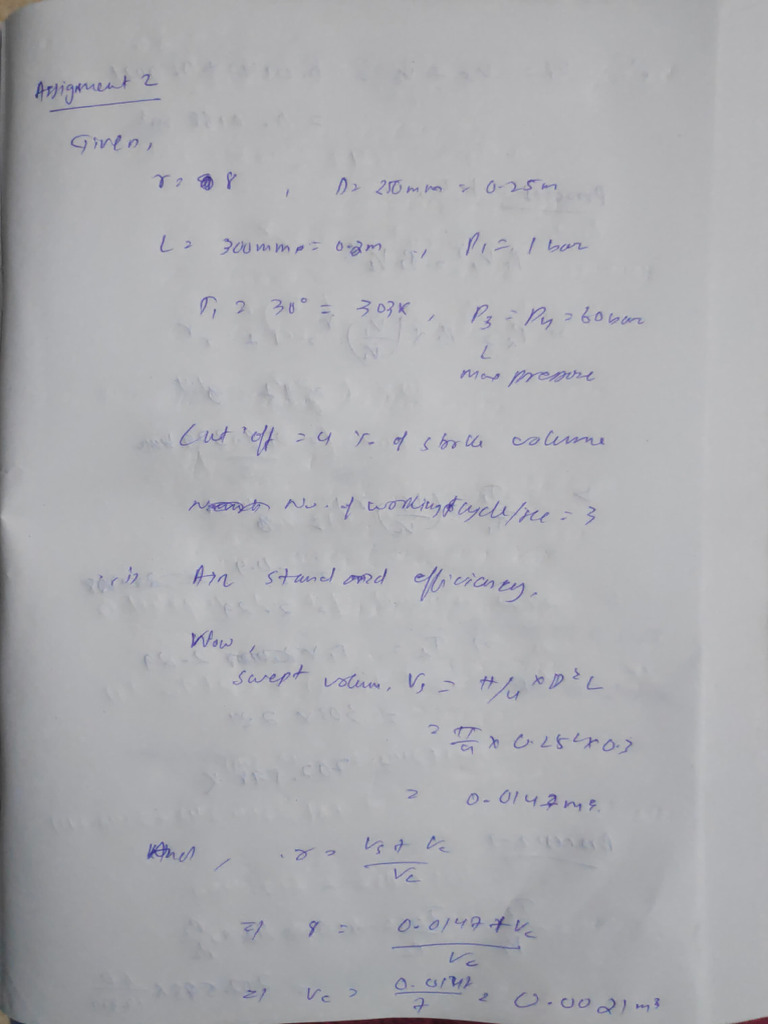 Assignment 2
Given,
r = 8 , D = 250mm = 0.25m
L = 300mm = 0.3m , P₁ = 1 bar
T₁ = 30° = 303K , P₃ = P₄ = 60 bar
max pressure
Cut off = 4 % of stroke volume
No. of working cycle/sec = 3
i) Air standard efficiency.
Now,
swept volum, Vs = π/4 × D² L
= π/4 × 0.25² × 0.3
= 0.0147 m³.
And, r = Vs + Vc / Vc
⇒ 8 = 0.0147 + Vc / Vc
⇒ Vc = 0.0147 / 7 = 0.0021 m³